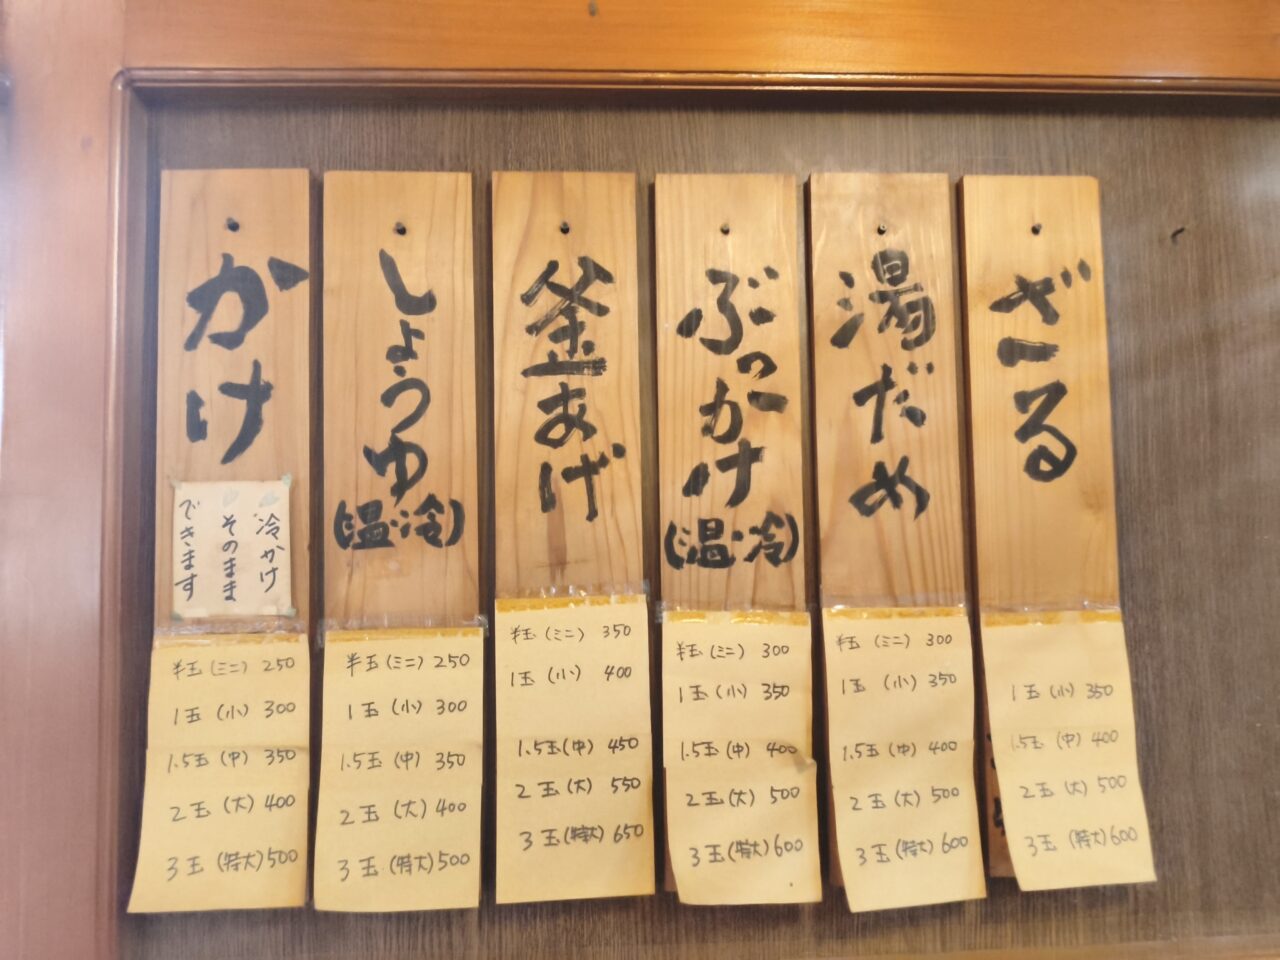 かけ
冷かけ
そのまま
できます
半玉(ミニ) 250
1玉(小) 300
1.5玉(中) 350
2玉(大) 400
3玉(特大) 500
しょうゆ
(温・冷)
半玉(ミニ) 250
1玉(小) 300
1.5玉(中) 350
2玉(大) 400
3玉(特大) 500
釜あげ
半玉(ミニ) 350
1玉(小) 400
1.5玉(中) 450
2玉(大) 550
3玉(特大) 650
ぶっかけ
(温・冷)
半玉(ミニ) 300
1玉(小) 350
1.5玉(中) 400
2玉(大) 500
3玉(特大) 600
湯だめ
半玉(ミニ) 300
1玉(小) 350
1.5玉(中) 400
2玉(大) 500
3玉(特大) 600
ざる
1玉(小) 350
1.5玉(中) 400
2玉(大) 500
3玉(特大) 600